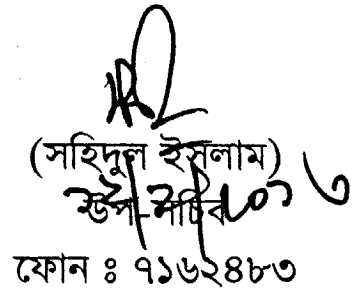 (সহিদুল ইসলাম)
উপ-সচিব
ফোন ঃ ৭১৬২৪৮৩